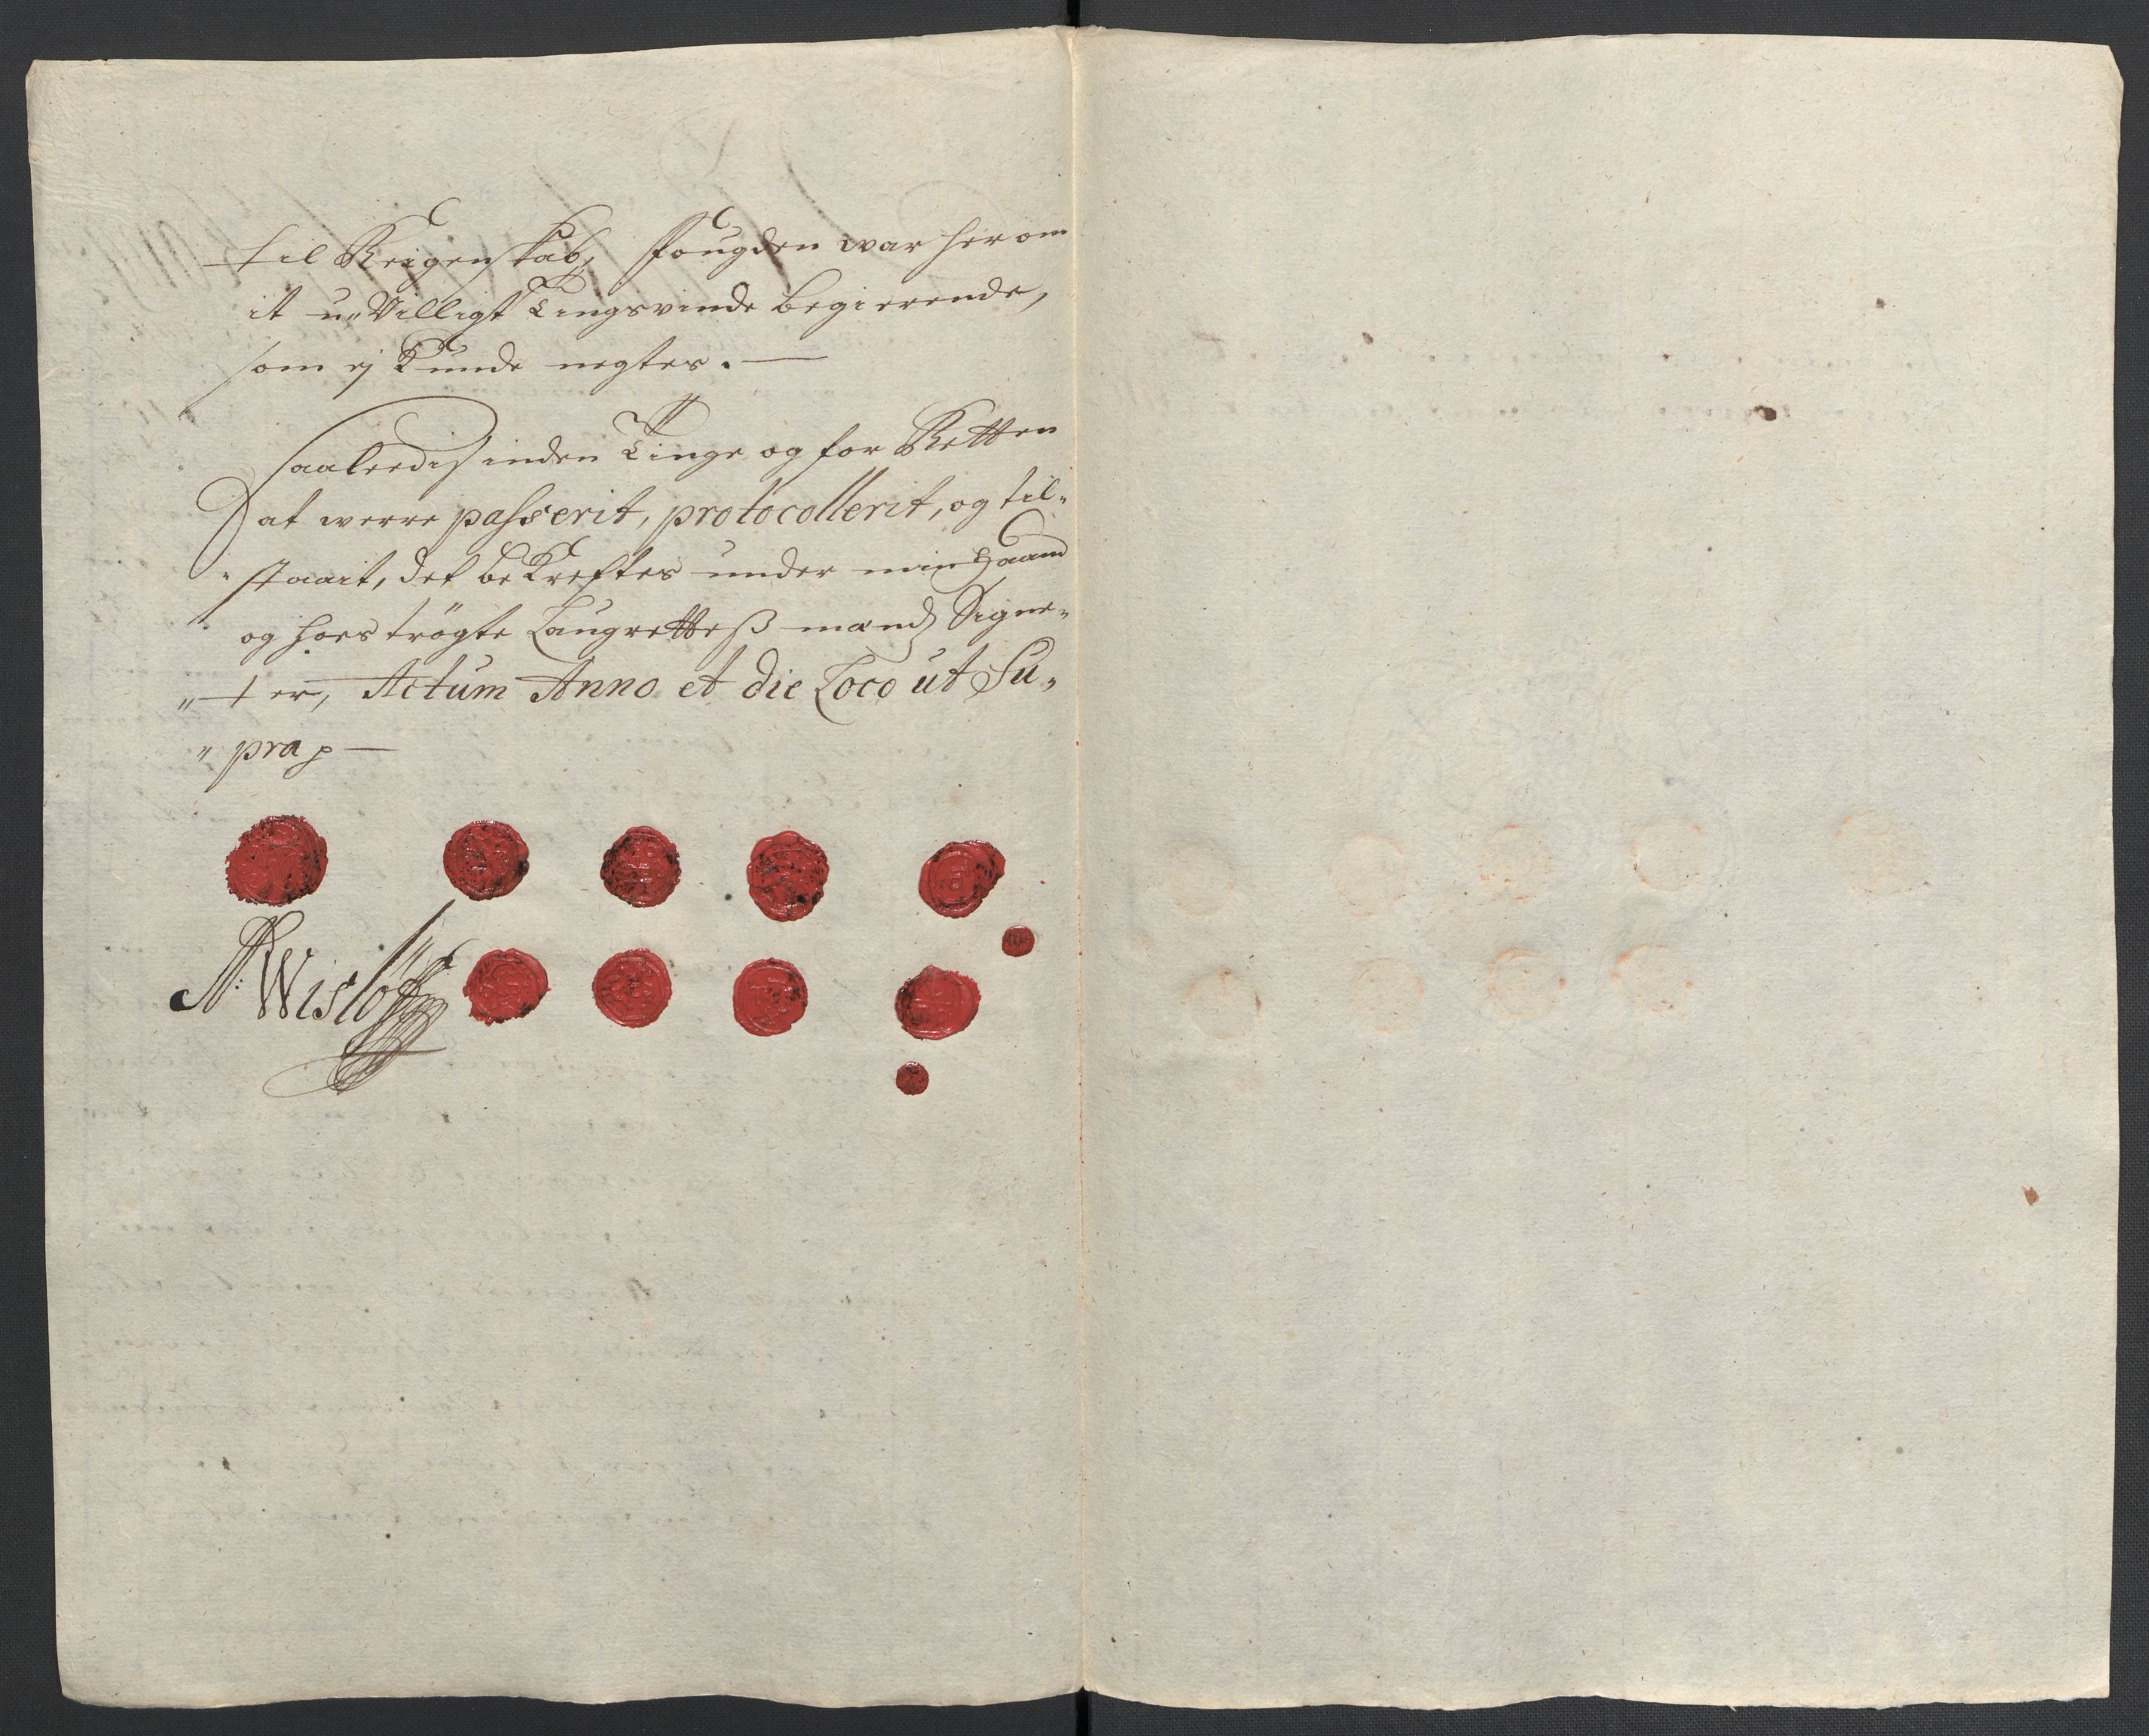 til Reigenskab, fougden war herom
it u-Villigt Tingsvinde begierende,
som ej Kunde negtes. —
Saaleedis inden Tinge og for Retten
at werre passerit, protocollerit, og til-
staait, det beKreftes under min Haand
og hoes trögte Laugretteß mænds Signe-
ter, Actum Anno et die Loco ut Su-
pra
A: Wislöff